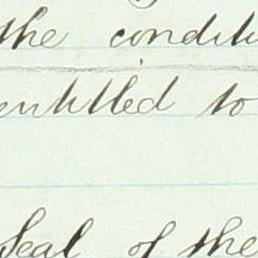 the condit
entitled to
Seal of the